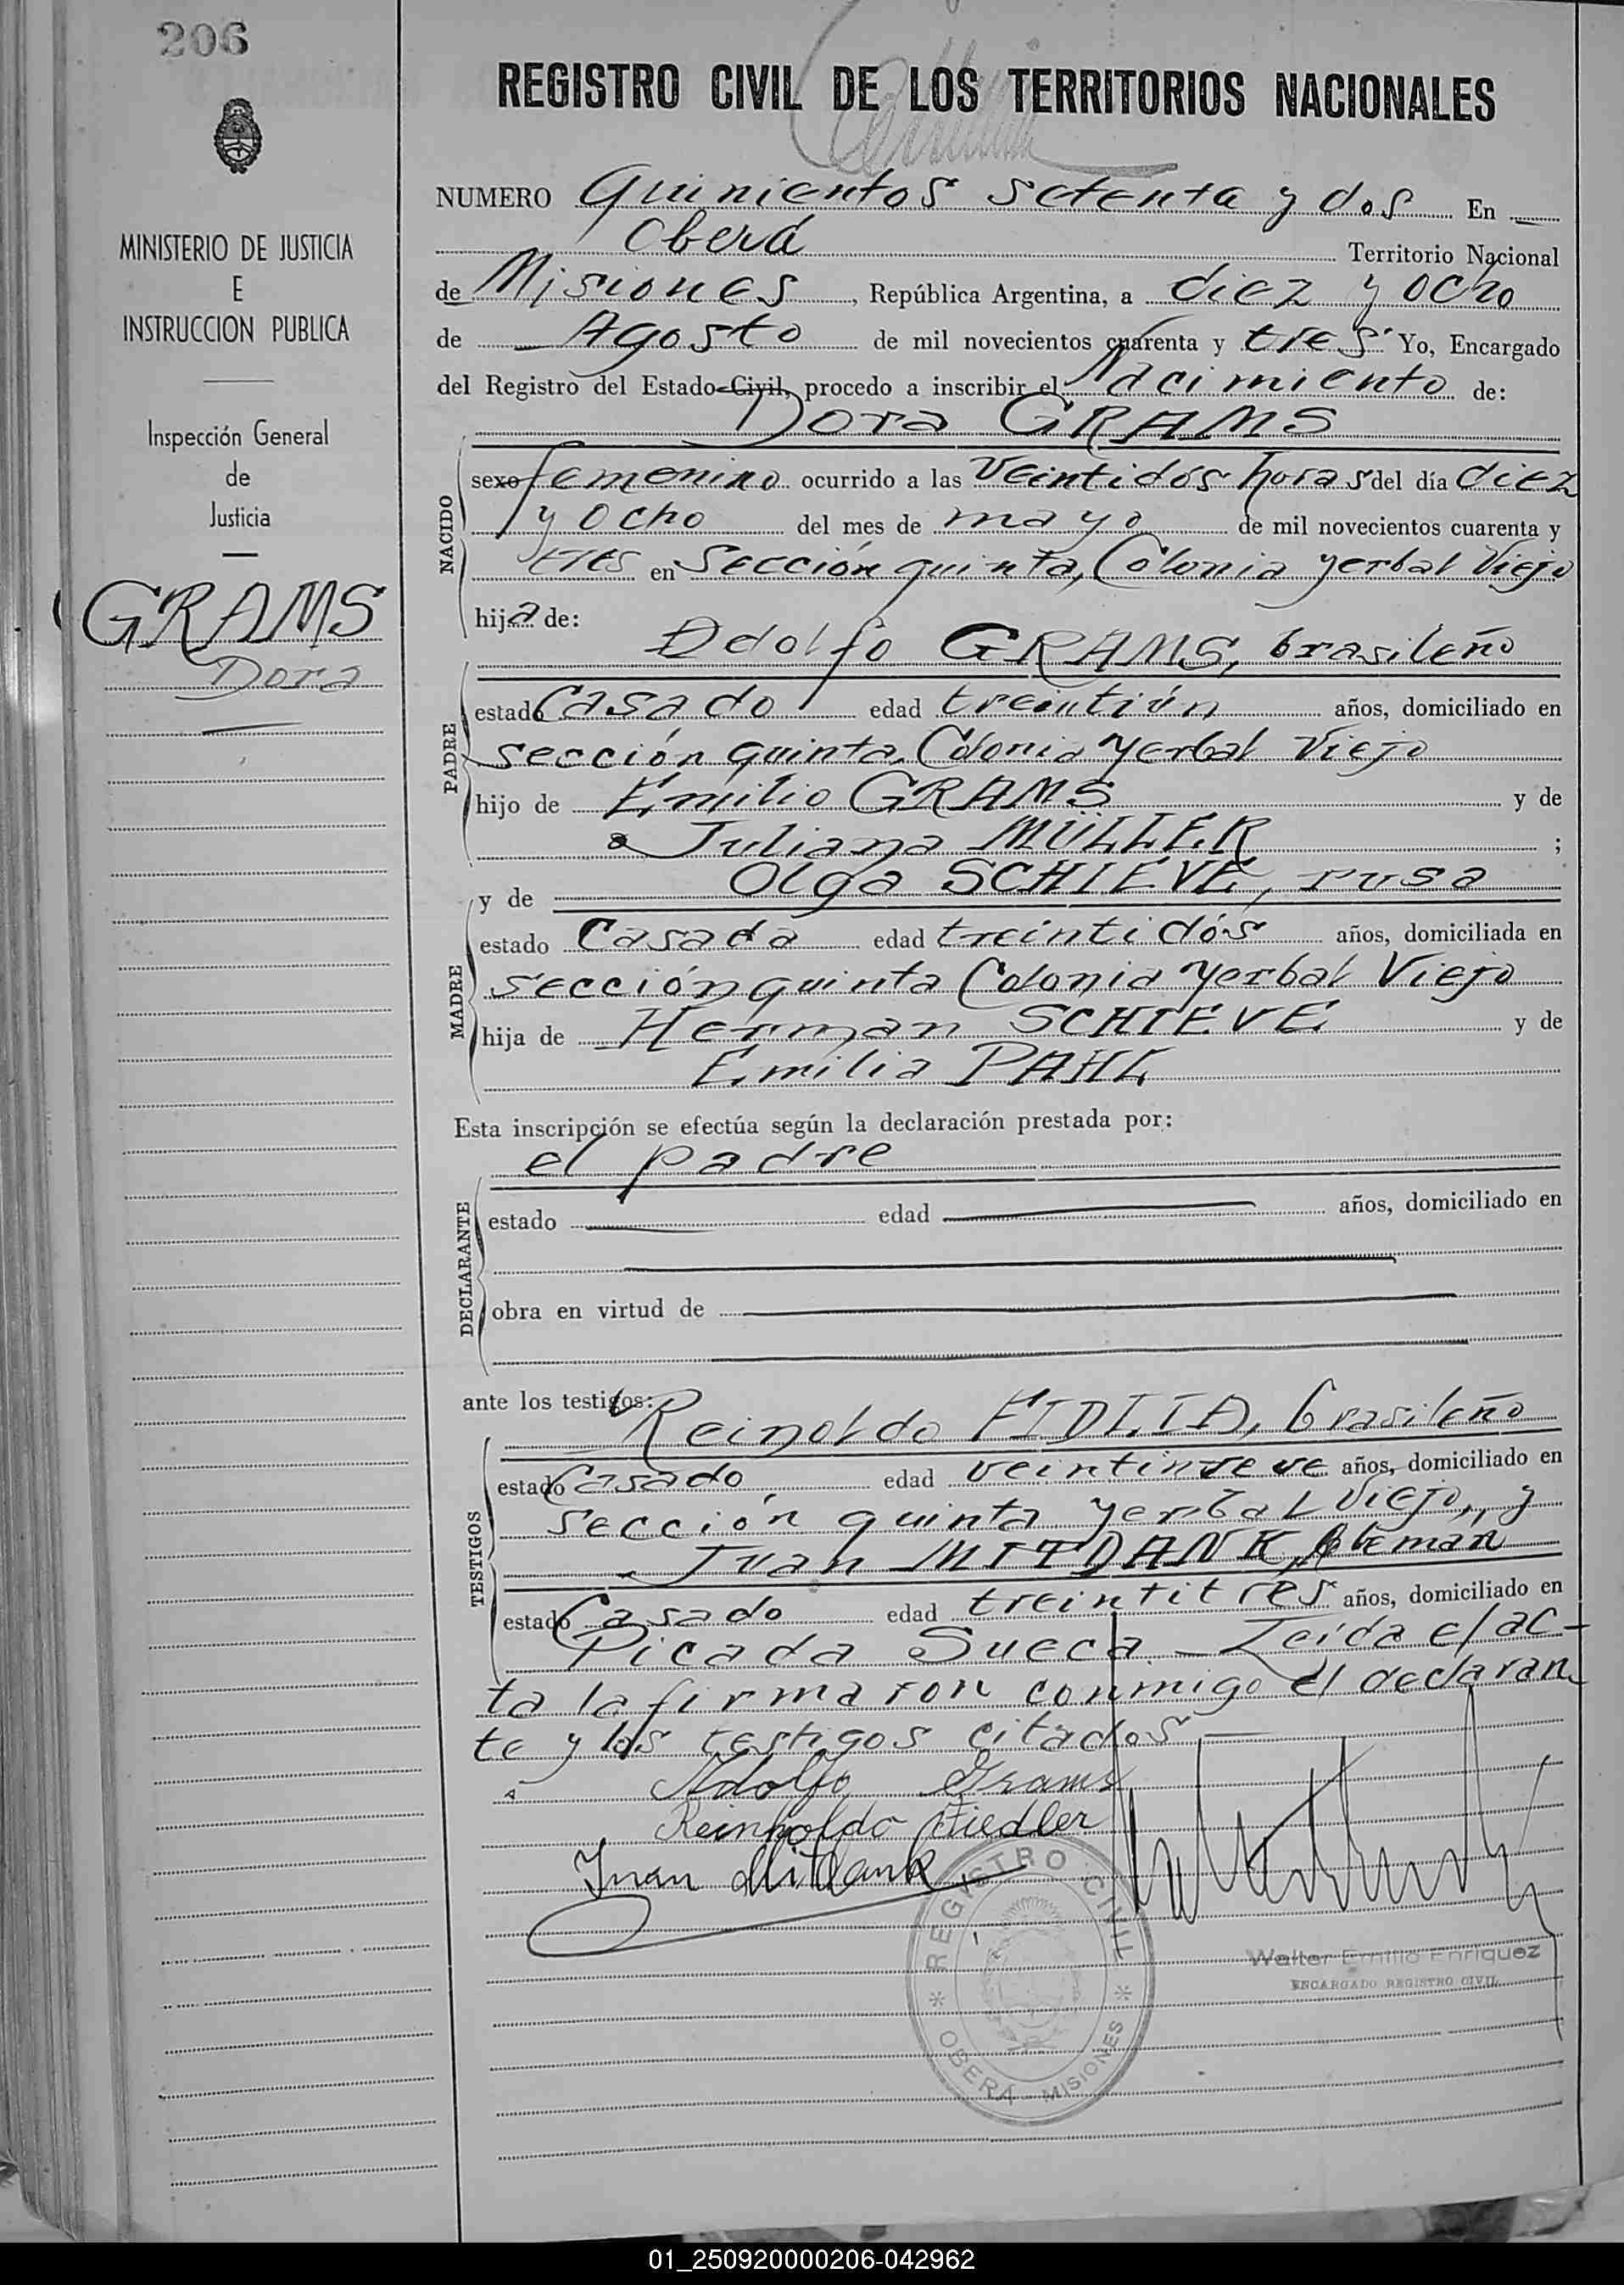 206
REGISTRO CIVIL DE LOS TERRITORIOS NACIONALES
MINISTERIO DE JUSTICIA
E
INSTRUCCION PUBLICA
Inspección General
de
Justicia
GRAMS
Dora
NUMERO Quinientos setenta y dos En
Oberá Territorio Nacional
de Misiones, República Argentina, a diez y ocho
de Agosto de mil novecientos cuarenta y tres Yo, Encargado
del Registro del Estado Civil, procedo a inscribir el Nacimiento de:
Dora GRAMS
NACIDO
sexo femenino ocurrido a las veintidós horas del día diez
y ocho del mes de mayo de mil novecientos cuarenta y
tres en Sección quinta, Colonia yerbal Viejo
hija de:
Adolfo GRAMS, brasileño
PADRE
estado Casado edad treintiún años, domiciliado en
sección quinta, Colonia yerbal Viejo
hijo de Emilio GRAMS y de
Juliana MÜLLER ;
y de Olga SCHIEVE, rusa
MADRE
estado Casada edad treintidós años, domiciliada en
sección quinta Colonia yerbal Viejo
hija de Herman SCHIEVE y de
Emilia PAHL
Esta inscripción se efectúa según la declaración prestada por:
el padre
DECLARANTE
estado edad años, domiciliado en
obra en virtud de
ante los testigos:
Reinoldo brasileño
TESTIGOS
estado Casado edad veintinueve años, domiciliado en
sección quinta yerbal Viejo, y
Juan MITDANK, Aleman
estado Casado edad treintitrés años, domiciliado en
Picada Sueca. Leída el ac-
ta la firmaron conmigo el declaran
te y los testigos citados
Adolfo Grams
Reinholdo Fiedler
Juan Mitdank
REGISTRO CIVIL
OBERÁ - MISIONES
Walter Emilio Enriquez
ENCARGADO REGISTRO CIVIL
01_250920000206-042962